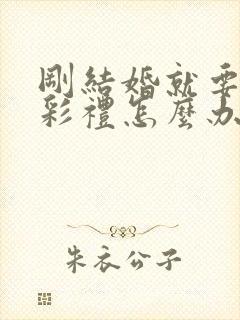 剛結婚就要
彩禮怎麼办
朱衣公子